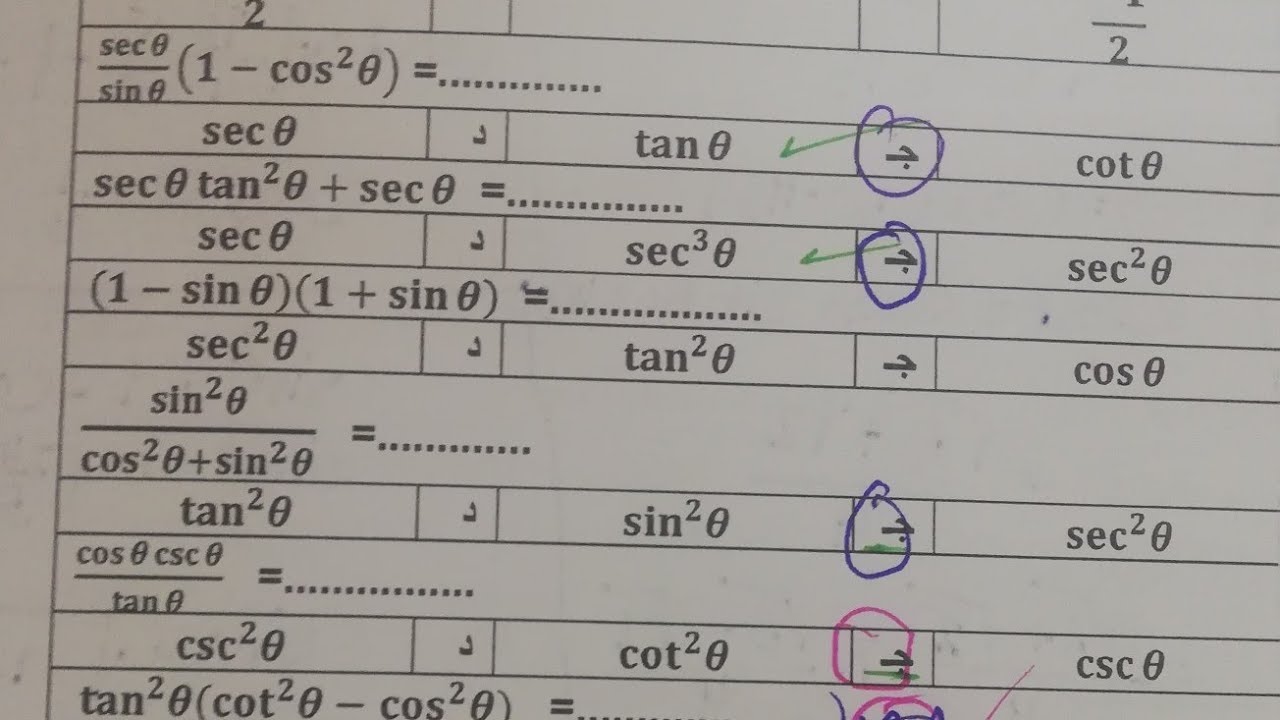 2 2
sec θ / sin θ (1 − cos²θ) =..............
sec θ د tan θ ج cot θ
sec θ tan²θ + sec θ =...............
sec θ د sec³θ ج sec²θ
(1 − sin θ)(1 + sin θ) =..................
sec²θ د tan²θ ج cos θ
sin²θ / cos²θ+sin²θ =.............
tan²θ د sin²θ ج sec²θ
cos θ csc θ / tan θ =................
csc²θ د cot²θ ج csc θ
tan²θ(cot²θ − cos²θ) =............